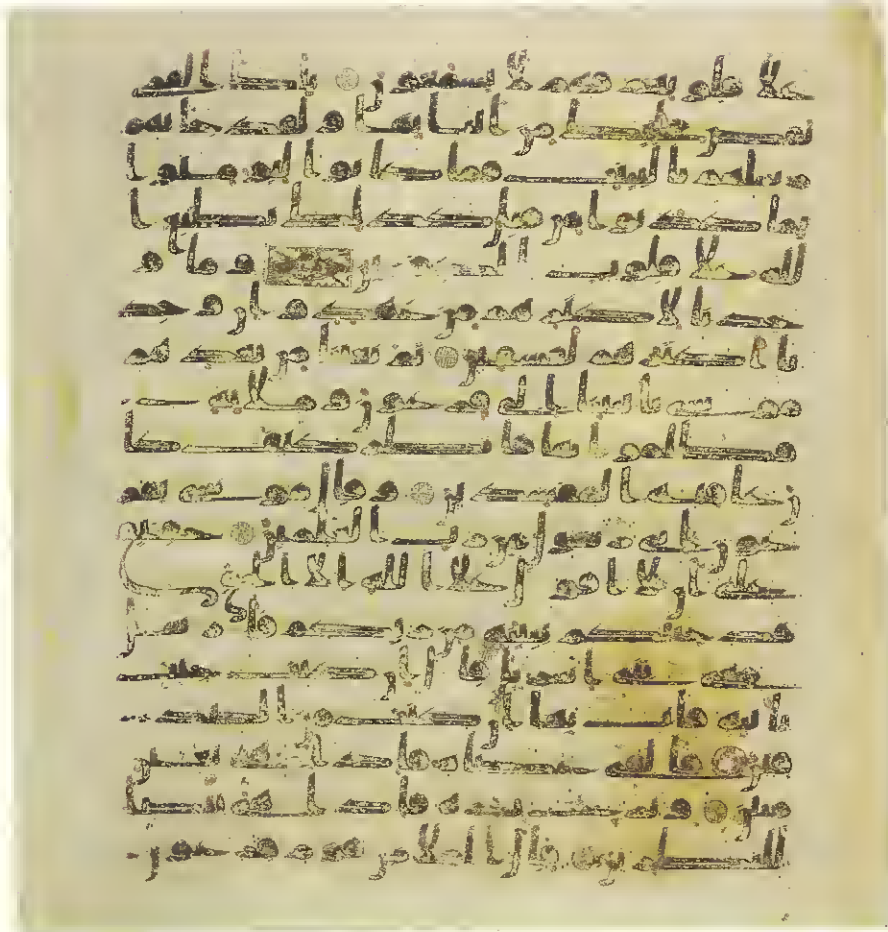 علا قلوبهم فهم لا يسمعون تلك القر
ى نقص عليك من انبائها ولقد جاتهم
رسلهم بالبينت فما كانوا ليومنوا
بما كذبوا من قبل كذلك يطبع
الله علا قلوب الكفرين وما و
جدنا لاكثرهم من عهد وان وجد
نا اكثرهم لفسقين ثم بعثنا من بعدهم
موسى بايتنا الى فرعون وملايه
فظلموا بها فانظر كيف كا
ن عاقبة المفسدين وقال موسى يفر
عون انى رسول من رب العلمين حقيق
على ان لا اقول علا الله الا الحق
قد جئتكم ببينة من ربكم فارسل
معى بنى اسريل قال ان كنت جيت
باية فات بها ان كنت من الصد
قين فالقى عصاه فاذا هى ثعبن
مبين ونزع يده فاذا هى بيضا
للنظرين قال الملا من قوم فرعون